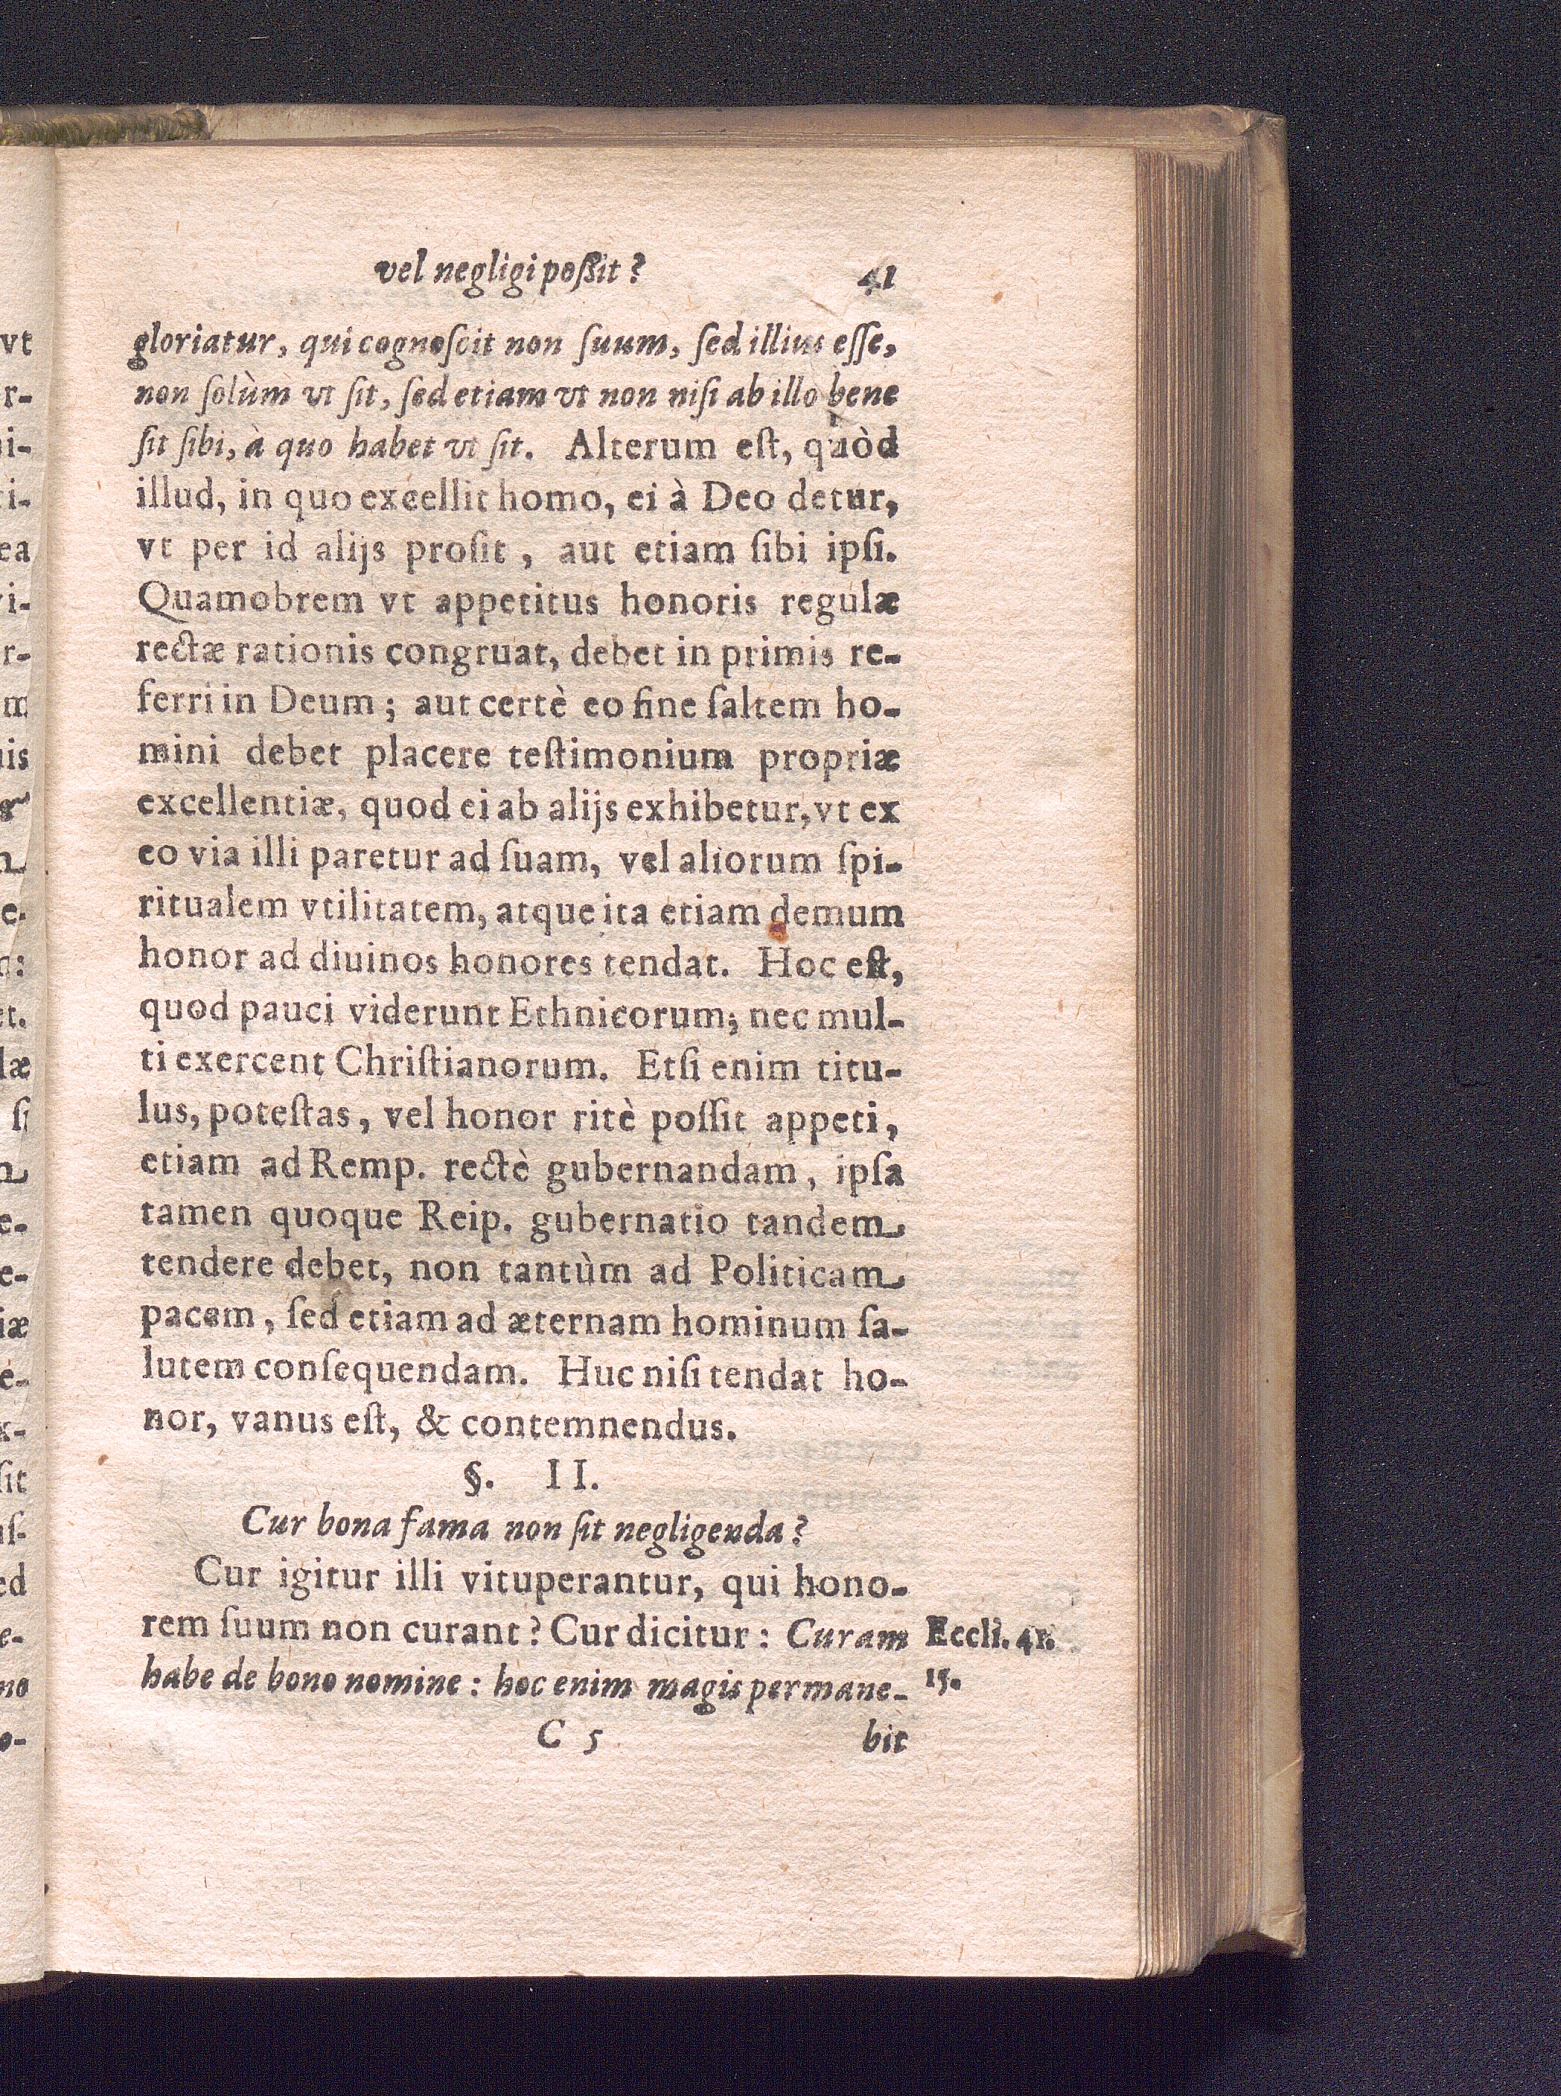 vel negligi poßit? 41
gloriatur, qui cognoſcit non ſuum, ſed illius eſſe,
non ſolùm vt ſit, ſed etiam vt non niſi ab illo bene
ſit ſibi, à quo habet vt ſit. Alterum eſt, quòd
illud, in quo excellit homo, ei à Deo detur,
vt per id alijs proſit, aut etiam ſibi ipſi.
Quamobrem vt appetitus honoris regulæ
rectæ rationis congruat, debet in primis re-
ferri in Deum; aut certè eo fine ſaltem ho-
mini debet placere teſtimonium propriæ
excellentiæ, quod ei ab alijs exhibetur, vt ex
eo via illi paretur ad ſuam, vel aliorum ſpi-
ritualem vtilitatem, atque ita etiam demum
honor ad diuinos honores tendat. Hoc eſt,
quod pauci viderunt Ethnicorum; nec mul-
ti exercent Chriſtianorum. Etſi enim titu-
lus, poteſtas, vel honor ritè poſſit appeti,
etiam ad Remp. rectè gubernandam, ipſa
tamen quoque Reip. gubernatio tandem
tendere debet, non tantùm ad Politicam
pacem, ſed etiam ad æternam hominum ſa-
lutem conſequendam. Huc niſi tendat ho-
nor, vanus eſt, & contemnendus.
§. II.
Cur bona fama non ſit negligenda?
Cur igitur illi vituperantur, qui hono-
rem ſuum non curant? Cur dicitur: Curam
Eccli. 41.
15.
habe de bono nomine: hoc enim magis permane-
C 5 bit